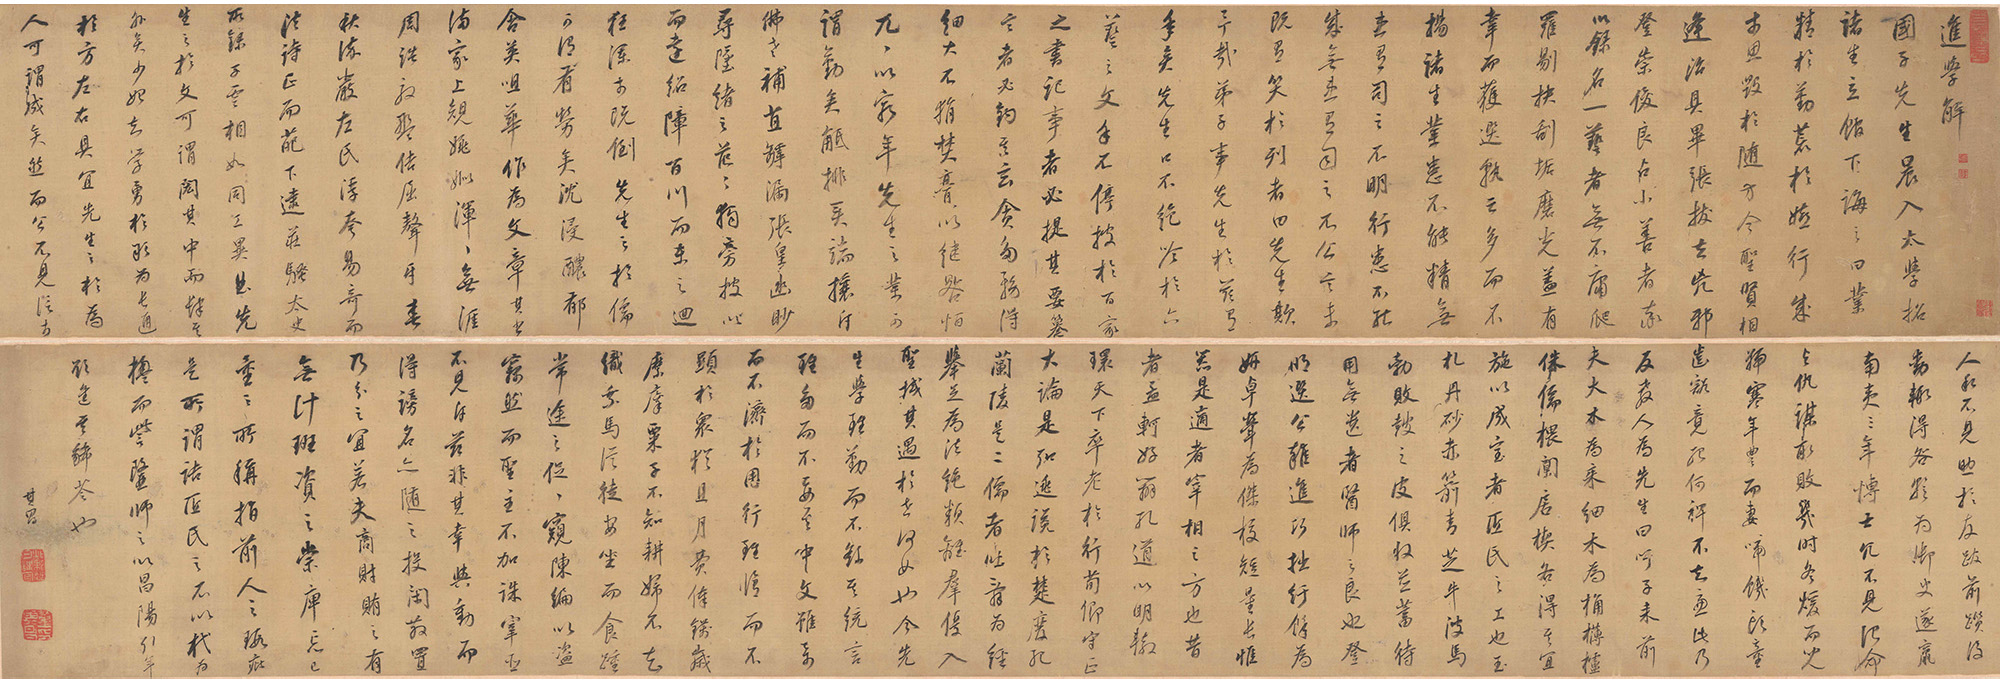 進學解
國子先生晨入太學招
諸生立館下誨之曰業
精於勤荒於嬉行成
於思毀於随方今聖賢相
逢治具畢張拔去兇邪
登崇俊良占小善者率
以錄名一藝者無不庸爬
羅剔抉刮垢磨光蓋有
幸而獲選孰云多而不
揚諸生業患不能精無
患有司之不明行患不能
成無患有司之不公言未
既有笑於列者曰先生欺
予哉弟子事先生於茲有
年矣先生口不絕吟於六
藝之文手不停披於百家
之書記事者必提其要纂
言者必鈎其玄貪多務得
細大不捐焚膏以繼晷恒
兀兀以窮年先生之業可
謂勤矣觝排異端攘斥
佛老補苴罅漏張皇幽眇
尋墜緒之茫茫獨旁搜
而遠紹障百川而東之迴
狂瀾於既倒先生之於儒
可謂有勞矣沈浸醲郁
含英咀華作為文章其書
滿家上規姚姒渾渾無涯
周誥殷盤佶屈聱牙春
秋謹嚴左氏浮夸易奇而
法詩正而葩下逮莊騷太史
所錄子雲相如同工異曲先
生之於文可謂閎其中而肆其
外矣少始知學勇於敢為長通
於方左右具宜先生之於為
人可謂成矣然而公不見信於
人私不見助於友跋前躓後
動輒得咎暫為御史遂竄
南夷三年博士冗不見治命
與仇謀取敗幾時冬煖而兒
號寒年豐而妻啼饑頭童
齒豁竟死何裨不知慮此乃
反教人為先生曰吁子來前
夫大木為杗細木為桷欂櫨
侏儒椳闑扂楔各得其宜
施以成室者匠氏之工也玉
札丹砂赤箭青芝牛溲馬
勃敗鼓之皮俱收並蓄待
用無遺者醫師之良也登
明選公雜進巧拙紆餘為
妍卓犖為傑校短量長惟
器是適者宰相之方也昔
者孟軻好辯孔道以明轍
環天下卒老於行荀卿守正
大論是弘逃讒於楚廢死
蘭陵是二儒者吐辭為經
舉足為法絕類離羣優入
聖域其遇於世何如也今先
生學雖勤而不繇其統言
雖多而不要其中文雖奇
而不濟於用行雖修而不
顯於眾猶且月費俸錢歲
糜廩粟子不知耕婦不知
織乘馬從徒安坐而食踵
常途之促促窺陳編以盜
竊然而聖主不加誅宰臣
不見斥茲非其幸與動而
得謗名亦隨之投閑散置
乃分之宜若夫商財賄之有
無計班資之崇庳忘己
量之所稱指前人之瑕疵
是所謂詰匠氏之不以杙為
楹而訾醫師之以昌陽引年
欲進其豨苓也
其昌